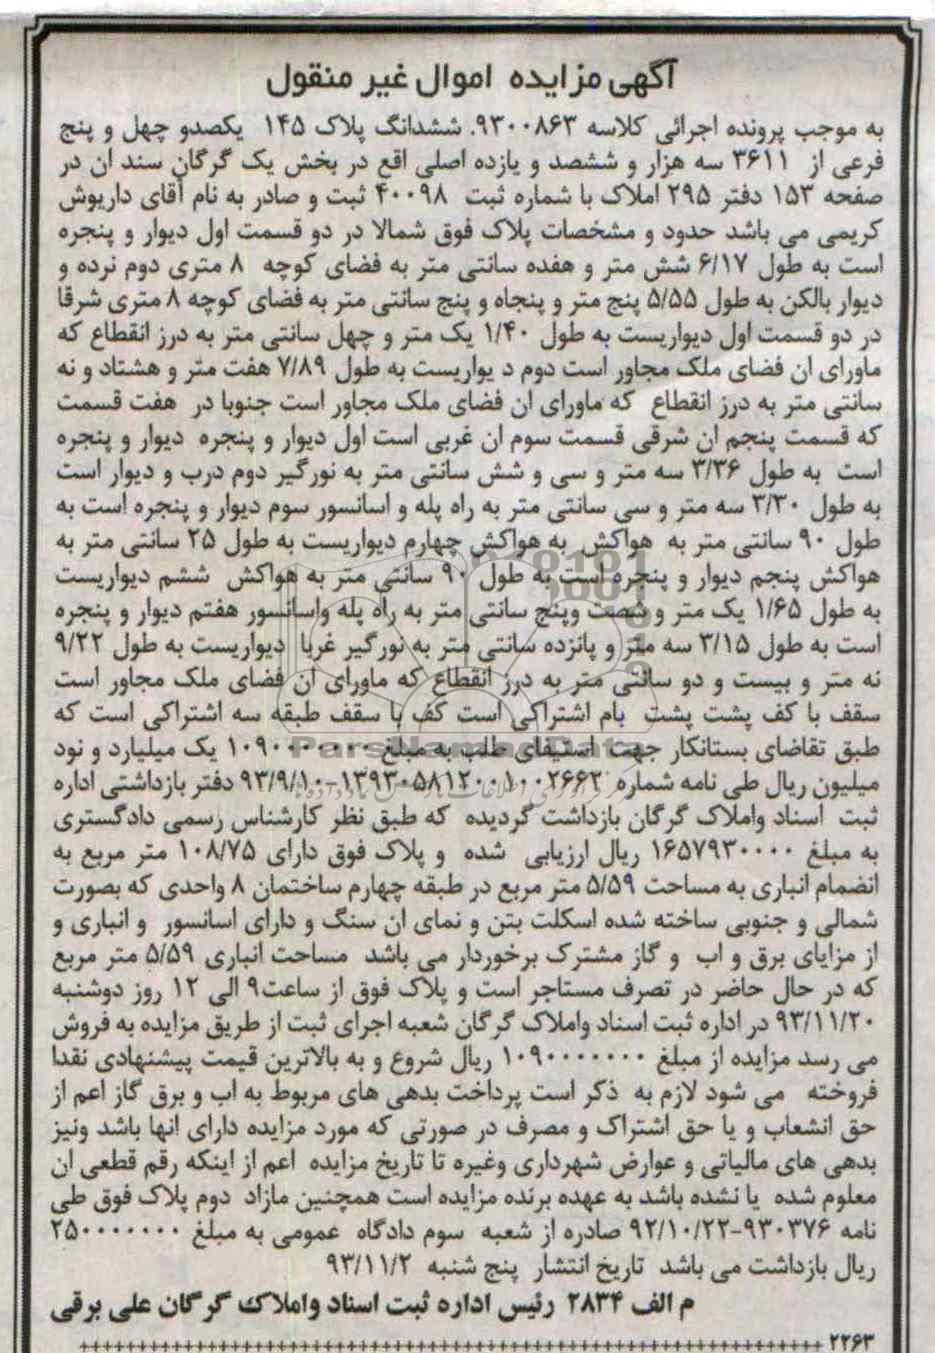 آگهی مزایده اموال غیر منقول
به موجب پرونده اجرائی کلاسه ۹۳۰۰۸۶۳. ششدانگ پلاک ۱۴۵ یکصدو چهل و پنج
فرعی از ۳۶۱۱ سه هزار و ششصد و یازده اصلی اقع در بخش یک گرگان سند ان در
صفحه ۱۵۳ دفتر ۲۹۵ املاک با شماره ثبت ۴۰۰۹۸ ثبت و صادر به نام آقای داریوش
کریمی می باشد حدود و مشخصات پلاک فوق شمالا در دو قسمت اول دیوار و پنجره
است به طول ۶/۱۷ شش متر و هفده سانتی متر به فضای کوچه ۸ متری دوم نرده و
دیوار بالکن به طول ۵/۵۵ پنج متر و پنجاه و پنج سانتی متر به فضای کوچه ۸ متری شرقا
در دو قسمت اول دیواریست به طول ۱/۴۰ یک متر و چهل سانتی متر به درز انقطاع که
ماورای ان فضای ملک مجاور است دوم د یواریست به طول ۷/۸۹ هفت متر و هشتاد و نه
سانتی متر به درز انقطاع که ماورای ان فضای ملک مجاور است جنوبا در هفت قسمت
که قسمت پنجم ان شرقی قسمت سوم ان غربی است اول دیوار و پنجره دیوار و پنجره
است به طول ۳/۳۶ سه متر و سی و شش سانتی متر به نورگیر دوم درب و دیوار است
به طول ۳/۳۰ سه متر و سی سانتی متر به راه پله و اسانسور سوم دیوار و پنجره است به
طول ۹۰ سانتی متر به هواکش به هواکش چهارم دیواریست به طول ۲۵ سانتی متر به
هواکش پنجم دیوار و پنجره است به طول ۹۰ سانتی متر به هواکش ششم دیواریست
به طول ۱/۶۵ یک متر و شصت وپنج سانتی متر به راه پله واسانسور هفتم دیوار و پنجره
است به طول ۳/۱۵ سه متر و پانزده سانتی متر به نورگیر غربا دیواریست به طول ۹/۲۲
نه متر و بیست و دو سانتی متر به درز انقطاع که ماورای ان فضای ملک مجاور است
سقف با کف پشت پشت بام اشتراکی است کف با سقف طبقه سه اشتراکی است که
طبق تقاضای بستانکار جهت استیفای طلب به مبلغ ۱۰۹۰۰۰۰۰۰۰ یک میلیارد و نود
میلیون ریال طی نامه شماره ۱۳۹۳۰۵۸۱۲۰۰۱۰۰۲۶۶۲-۹۳/۹/۱۰ دفتر بازداشتی اداره
ثبت اسناد واملاک گرگان بازداشت گردیده که طبق نظر کارشناس رسمی دادگستری
به مبلغ ۱۶۵۷۹۳۰۰۰۰ ریال ارزیابی شده و پلاک فوق دارای ۱۰۸/۷۵ متر مربع به
انضمام انباری به مساحت ۵/۵۹ متر مربع در طبقه چهارم ساختمان ۸ واحدی که بصورت
شمالی و جنوبی ساخته شده اسکلت بتن و نمای ان سنگ و دارای اسانسور و انباری و
از مزایای برق و اب و گاز مشترک برخوردار می باشد مساحت انباری ۵/۵۹ متر مربع
که در حال حاضر در تصرف مستاجر است و پلاک فوق از ساعت۹ الی ۱۲ روز دوشنبه
۹۳/۱۱/۲۰ در اداره ثبت اسناد واملاک گرگان شعبه اجرای ثبت از طریق مزایده به فروش
می رسد مزایده از مبلغ ۱۰۹۰۰۰۰۰۰۰ ریال شروع و به بالاترین قیمت پیشنهادی نقدا
فروخته می شود لازم به ذکر است پرداخت بدهی های مربوط به اب و برق گاز اعم از
حق انشعاب و یا حق اشتراک و مصرف در صورتی که مورد مزایده دارای انها باشد ونیز
بدهی های مالیاتی و عوارض شهرداری وغیره تا تاریخ مزایده اعم از اینکه رقم قطعی ان
معلوم شده یا نشده باشد به عهده برنده مزایده است همچنین مازاد دوم پلاک فوق طی
نامه ۹۳۰۳۷۶-۹۲/۱۰/۲۲ صادره از شعبه سوم دادگاه عمومی به مبلغ ۲۵۰۰۰۰۰۰۰
ریال بازداشت می باشد تاریخ انتشار پنج شنبه ۹۳/۱۱/۲
م الف ۲۸۳۴ رئیس اداره ثبت اسناد واملاک گرگان علی برقی
۲۲۶۳
ParsNamadData